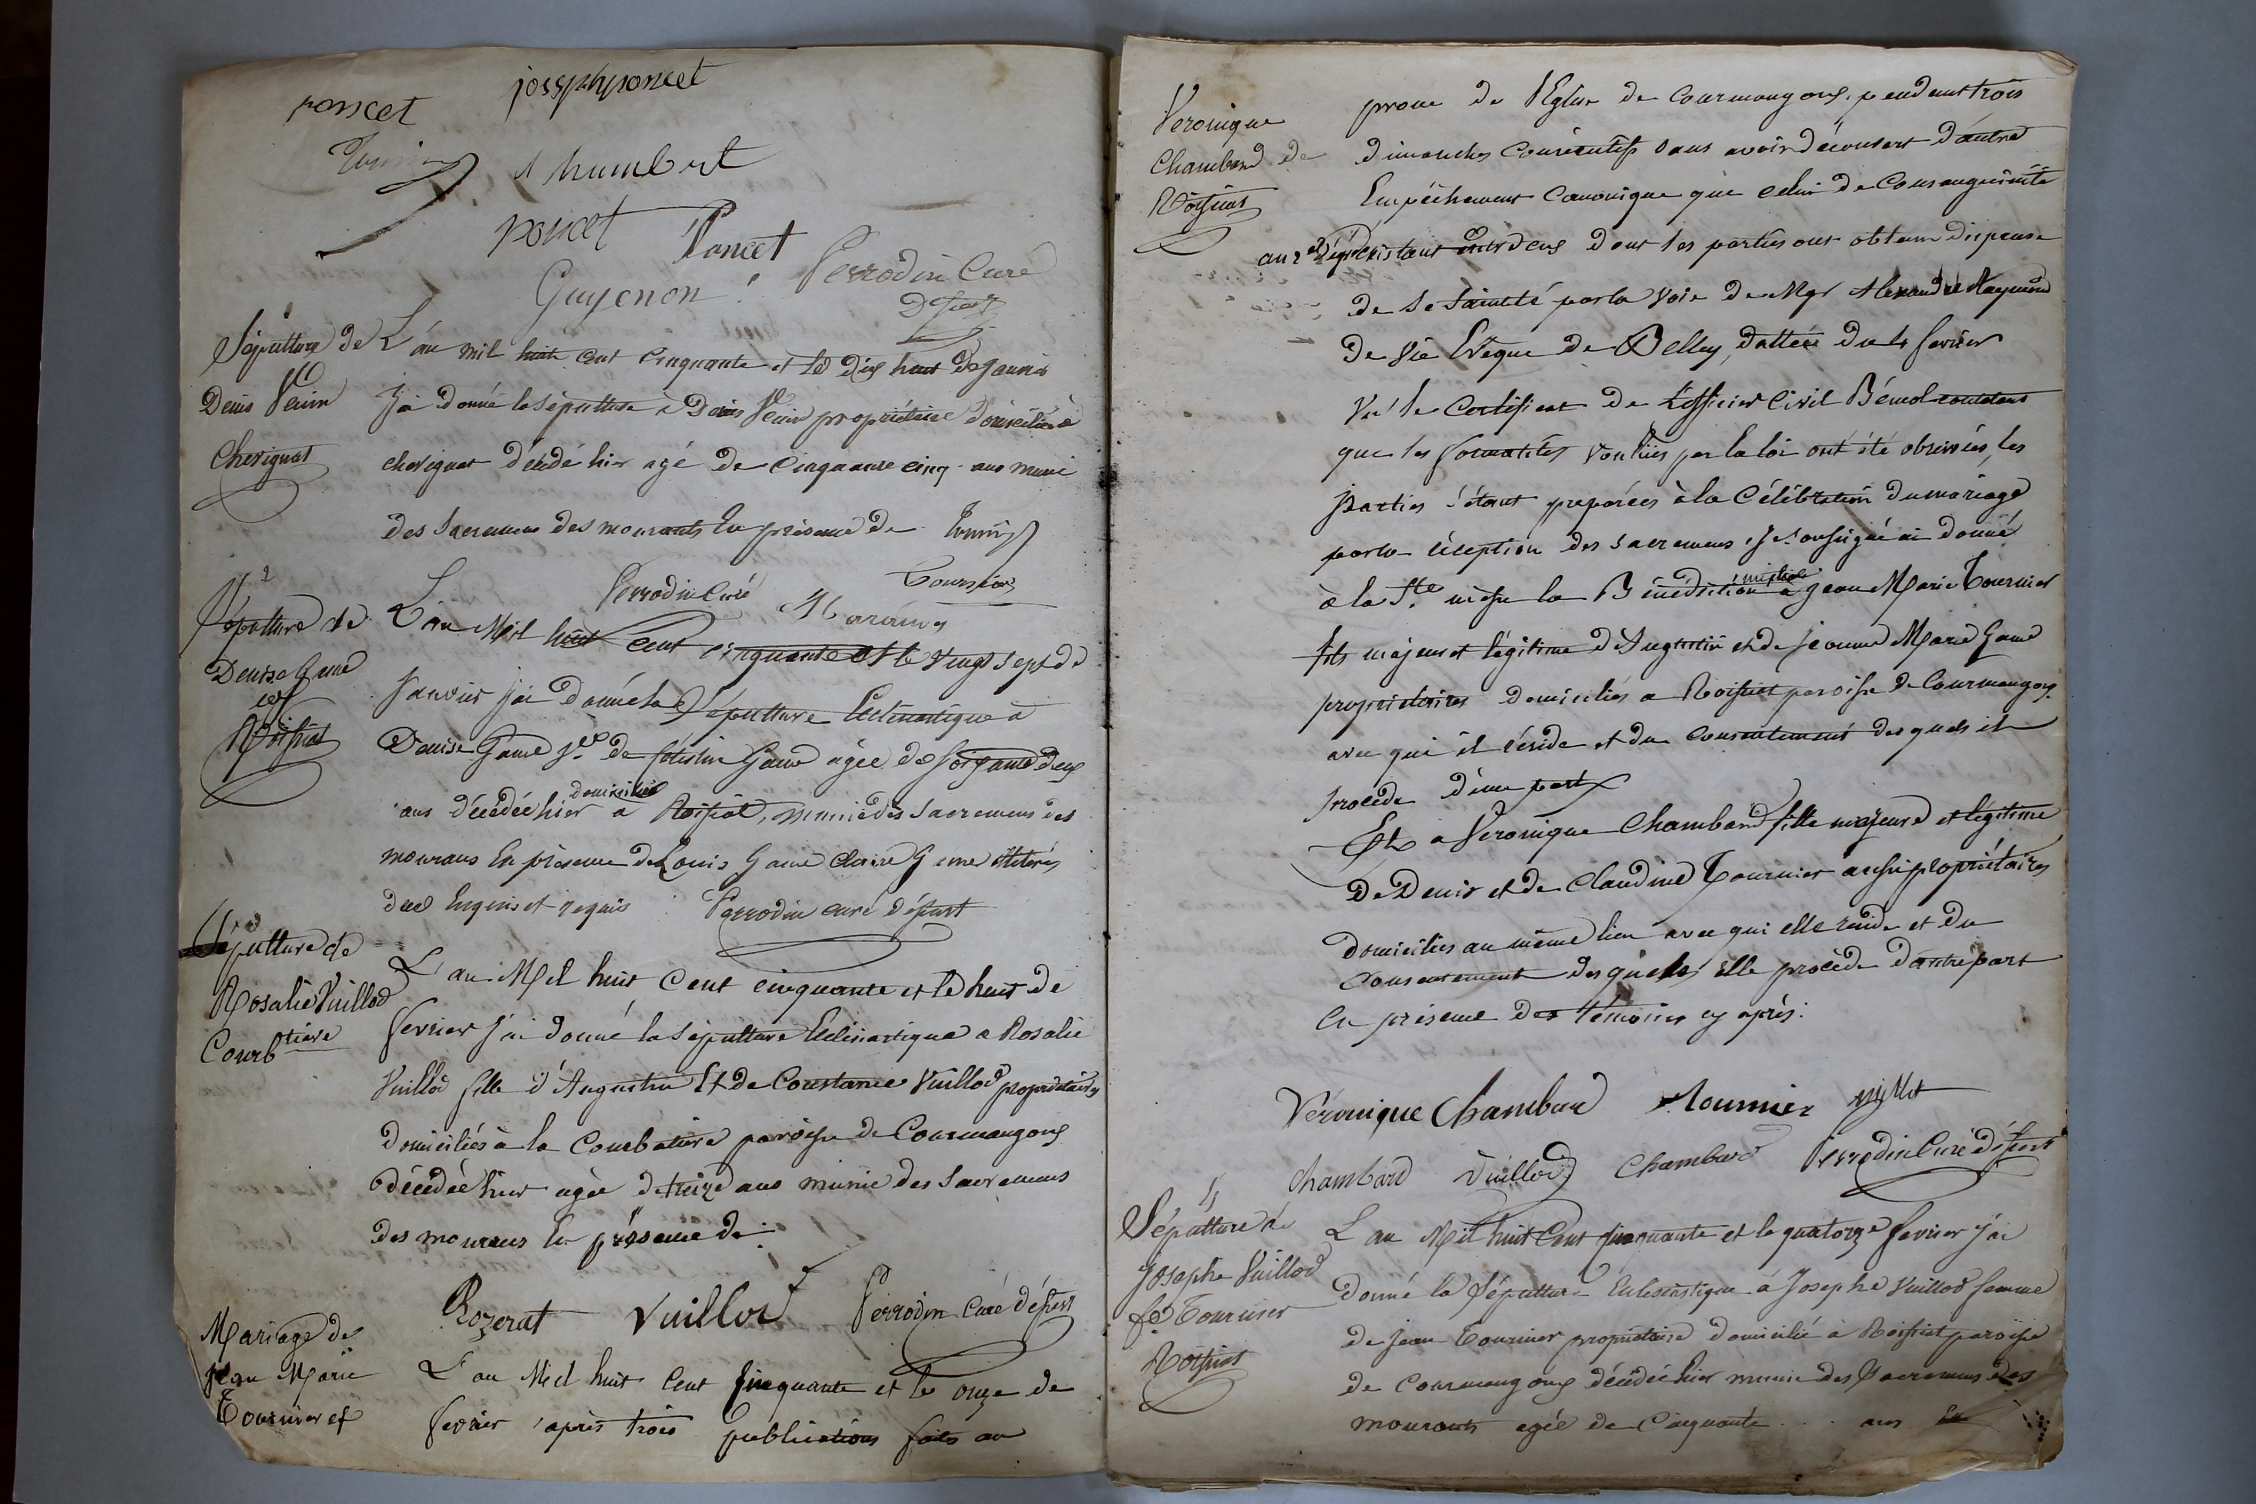 josephponcet
poncet
humbert
poncet Poncet
Guyenon Perrodin Curé
Dépert
Sépulture de
Denis Perrin
Chevignat
L'an mil huit cent Cinquante et le Dix huit De Janvier
J'ai Donné la sépulture à Denis Perrin propriétaire Domicilié à
chevignat décédé hier agé de Cinquante cinq ans muni
des Sacremens des mourants En présence De
Perrodin Curé
2
Sépulture de
Denise Game
Roissiat
L'an Mil huit Cent cinquante et le vingt sept de
Janvier j'ai Donné la Sépulture Ecclésiastique à
Denise Game de Célestin Game agée de Soixante Deux
ans décédée hier domiciliée à Roissiat, munie des Sacremens des
mourans En présence de Louis Game Claire Game illiterés
de ce Enquis et requis Perrodin curé dépert
3
Sépulture de
Rosalie Vuillod
Courbatière
L'an Mil huit Cent cinquante et le huit de
fevrier j'ai Donné la Sépulture Ecclésiastique a Rosalie
Vuillod fille d'Augustin Et de Constance Vuillod propriétaires
Domiciliés à la Courbatière paroisse de Courmangoux
Décédée hier agée de treize ans munie des Sacremens
des mourans En présence de
Rozerat Vuillod Perrodin Curé dépert
Mariage de
Jean Marie
Tournier et
L'an Mil huit Cent Cinquante et le onze de
fevrier après trois publications faits au
Veronique
Chambard de
Roissiat
prone de l'Eglise de Courmangoux pendant trois
Dimanches Consécutifs sans avoir découvert d'autre
Empêchement Canonique que celui de Consanguinité
au 2d Dégré Existant entr'deux Dont les parties ont obtenu Dispense
de Sa Sainteté par la Voie de Mgr Alexandre Raymond
de vie Evêque de Belley, Dattée Du 4 fevrier
Vu le Certificat de L'officier Civil constatant
que les formalités voulues par la loi ont été observées, les
parties s'étant preparées à la Célébration du mariage
par la réception des sacremens, Je Soussigné ai Donné
à la Ste messe la Bénédiction nuptiale à Jean Marie Tournier
fils majeur et légitime d'Augustin et de Jeanne Marie Game
propriétaires Domiciliés a Roissiat paroisse de Courmangoux
avec qui il réside et du Consentement desquels il
procède D'une part
Et a Veronique Chambard fille majeure et légitime
De Denis et de Claudine Tournier aussi propriétaires
Domiciliés au même lieu avec qui elle reside et Du
Consentement desquels elle procède D'autre part
En présence Des témoins cy après:
Véronique Chambard Tournier
Chambard Vuillod Chambard Perrodin Curé dépert
4
Sépulture de
Josephe Vuillod
fe Tournier
Roissiat
L'an Mil huit Cent Cinquante et le quatorze fevrier j'ai
Donné la Sépulture Ecclesiastique à Josephe Vuillod femme
de Jean Tournier propriétaire Domicilié à Roissiat paroisse
de Courmangoux décédée hier munie des Sacremens des
mourants agée de Cinquante ... ans En